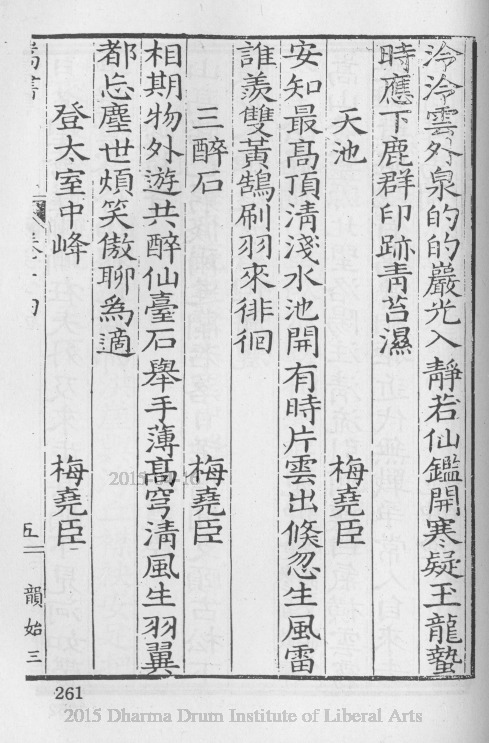 泠泠雲外泉的的巖光入靜若仙鑑開寒疑玉龍蟄
時應下鹿群印跡靑苔濕
天池 梅堯臣
安知最髙頂淸淺水池開有時片雲出倐忽生風雷
誰羨雙黃鵠刷羽來徘徊
三醉石 梅堯臣
相期物外遊共醉仙臺石舉手薄髙穹淸風生羽翼
都忘塵世煩笑傲聊爲適
登太室中峰 梅堯臣
五 韻始三
261
2015 Dharma Drum Institute of Liberal Arts